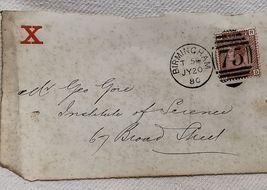 X
BIRMINGHAM
T 5
JY 20
80
75
Geo Gore
Institute of Science
67 Broad Street